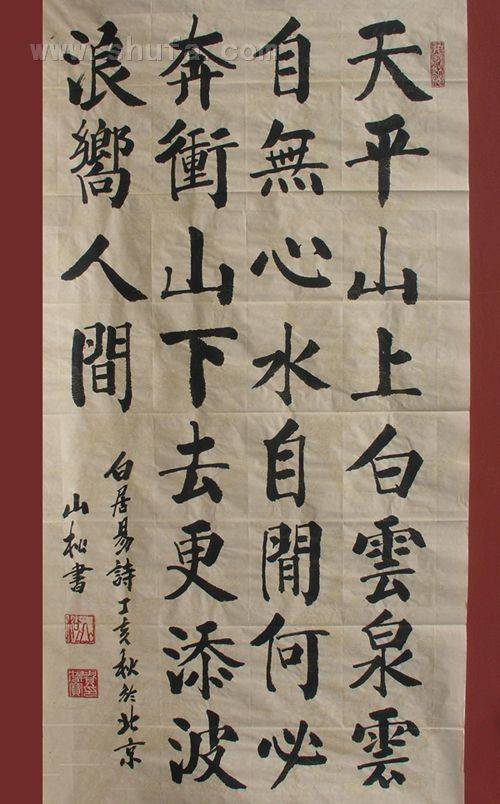 天平山上白雲泉雲
自無心水自閒何必
奔衝山下去更添波
浪嚮人間
白居易詩丁亥秋於北京
山松書
www.shufa.com